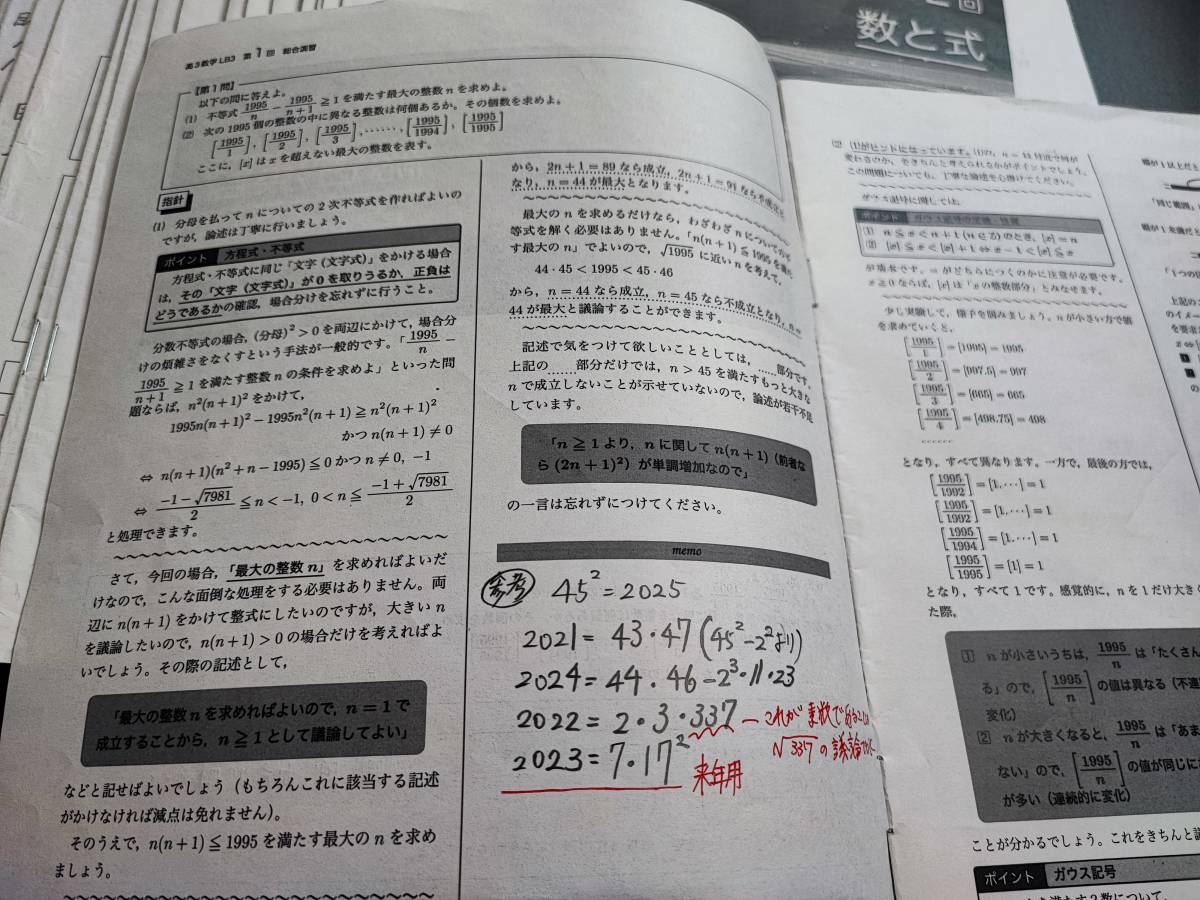 高3数学LB3 第1回 総合演習
【第1問】
以下の問に答えよ。
(1) 不等式 1995/n − 1995/(n+1) ≧ 1 を満たす最大の整数 n を求めよ。
(2) 次の1995個の整数の中に異なる整数は何個あるか。その個数を求めよ。
[1995/1], [1995/2], [1995/3], ……, [1995/1994], [1995/1995]
ここに，[x] は x を超えない最大の整数を表す。
指針
(1) 分母を払って n についての2次不等式を作ればよいの
ですが，論述は丁寧に行いましょう。
ポイント 方程式・不等式
方程式・不等式に同じ「文字（文字式）」をかける場合
は，その「文字（文字式）が0を取りうるか，正負は
どうであるかの確認，場合分けを忘れずに行うこと。
分数不等式の場合，(分母)²＞0を両辺にかけて，場合分
けの煩雑さをなくすという手法が一般的です。「1995/n −
1995/(n+1) ≧ 1 を満たす整数 n の条件を求めよ」といった問
題ならば，n²(n+1)² をかけて，
1995n(n+1)² − 1995n²(n+1) ≧ n²(n+1)²
かつ n(n+1) ≠ 0
⇔ n(n+1)(n²+n−1995) ≦ 0 かつ n ≠ 0, −1
⇔ (−1−√7981)/2 ≦ n < −1, 0 < n ≦ (−1+√7981)/2
と処理できます。
さて，今回の場合，「最大の整数 n」を求めればよいだ
けなので，こんな面倒な処理をする必要はありません。両
辺に n(n+1) をかけて整式にしたいのですが，大きい n
を議論したいので，n(n+1) > 0 の場合だけを考えればよ
いでしょう。その際の記述として，
「最大の整数 n を求めればよいので，n = 1 で
成立することから，n ≧ 1 として議論してよい」
などと記せばよいでしょう（もちろんこれに該当する記述
がかけなければ減点は免れません）。
そのうえで，n(n+1) ≦ 1995 を満たす最大の n を求め
ましょう。
から，2n+1 = 89 なら成立，2n+1 = 91 なら不成立と
なり，n = 44 が最大となります。
最大の n を求めるだけなら，わざわざ n についての
等式を解く必要はありません。「n(n+1) ≦ 1995 を満た
す最大の n」でよいので，√1995 に近い n を考えて，
44・45 < 1995 < 45・46
から，n = 44 なら成立，n = 45 なら不成立となり，n =
44 が最大と議論することができます。
記述で気をつけて欲しいこととしては，……部分です。
上記の……部分だけでは，n > 45 を満たすもっと大きな
n で成立しないことが示せていないので，論述が若干不足
しています。
「n ≧ 1 より，n に関して n(n+1)（前者な
ら (2n+1)²）が単調増加なので」
の一言は忘れずにつけてください。
memo
参考 45² = 2025
2021 = 43・47 (45²−2²より)
2024 = 44・46 − 2³・11・23
2022 = 2・3・337 — これが素数である
√337の議論
2023 = 7・17²
来年用
数と式
(2) (1)がヒントになっています。
この問題についても，丁寧な論述を心掛けてください。
ガウス記号に関しては，
ポイント ガウス記号の定義・性質
① n ≦ x < n+1 (n∈Z) のとき，[x] = n
② [x] ≦ x < [x]+1 ⇔ x−1 < [x] ≦ x
が基本です。= がどちらにつくのかに注意が必要です。
x ≧ 0 ならば，[x] は「x の整数部分」とみなせます。
少し実験して，様子を掴みましょう。n が小さい方で値
を求めていくと，
[1995/1] = [1995] = 1995
[1995/2] = [997.5] = 997
[1995/3] = [665] = 665
[1995/4] = [498.75] = 498
……
となり，すべて異なります。一方で，最後の方では，
[1995/1992] = [1.…] = 1
[1995/1992] = [1.…] = 1
[1995/1994] = [1.…] = 1
[1995/1995] = [1] = 1
となり，すべて1です。感覚的に，n を1だけ大きく
た際，
① n が小さいうちは，1995/n は「たくさん
る」ので，[1995/n] の値は異なる（不連
変化）
② n が大きくなると，1995/n は「あま
ない」ので，[1995/n] の値が同じに
が多い（連続的に変化）
ことが分かるでしょう。これをきちんと
ポイント ガウス記号
「同じ範囲」
「1つの
上記の
のイメー
を要求